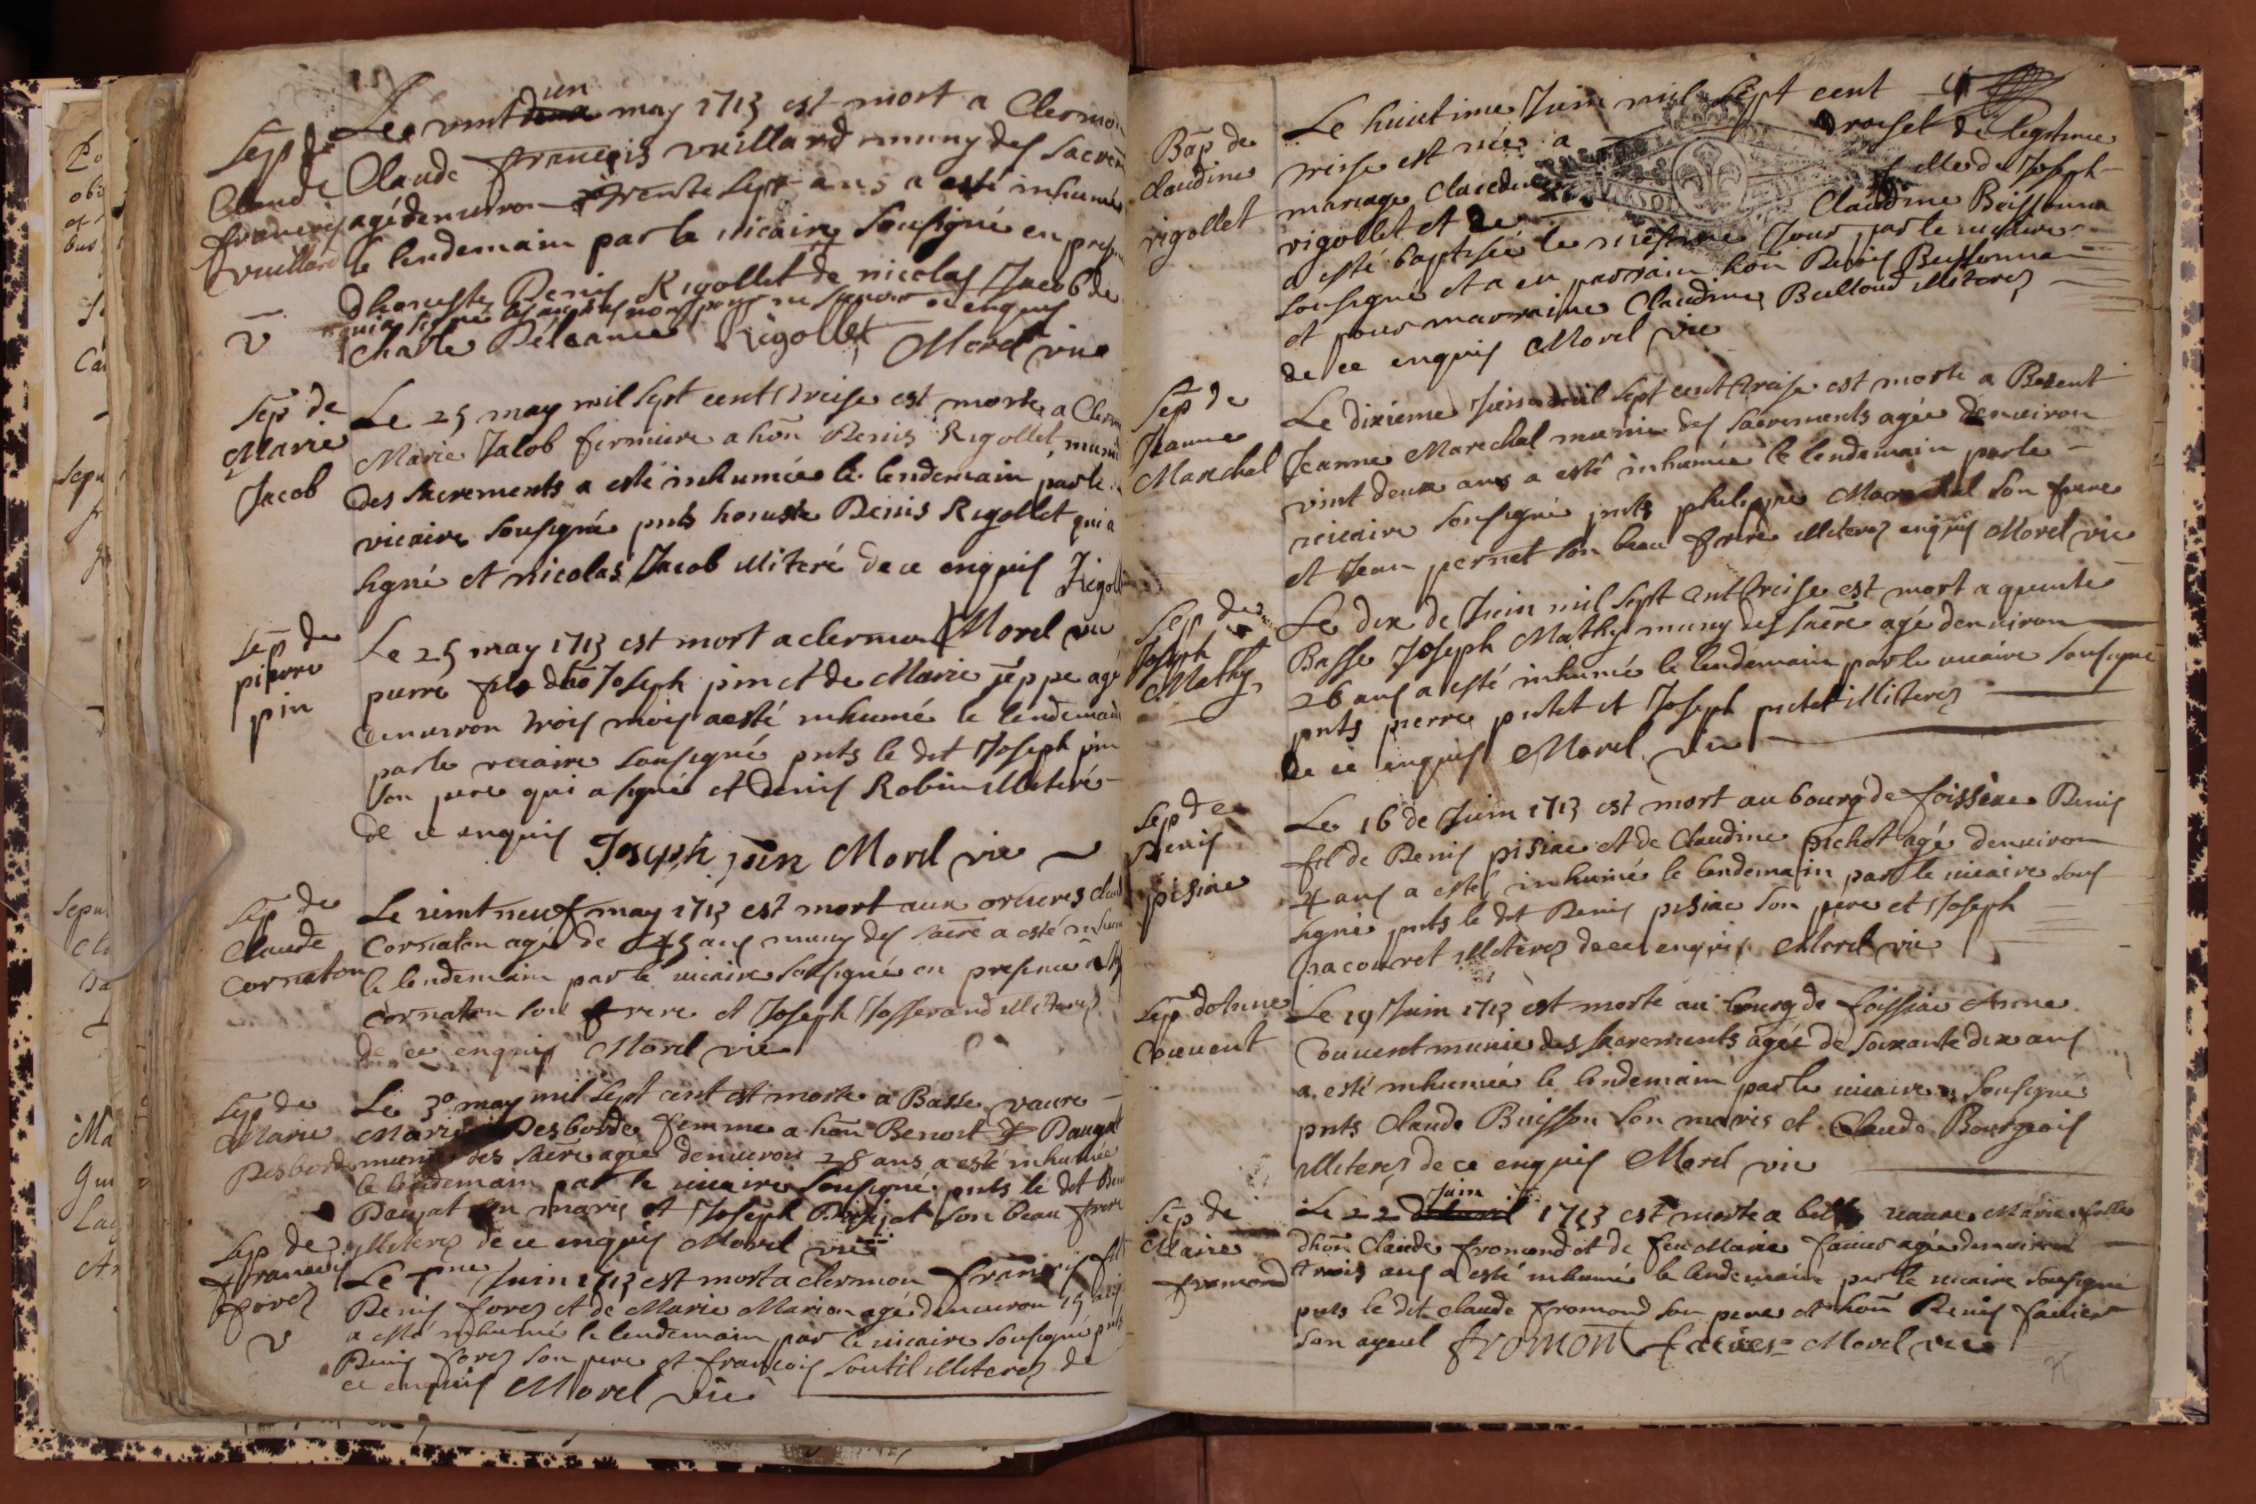 Sep de
Claude
francois
vuillard
Le vint un may 1713 est mort a Clermon
Claude francois vuillard muny des sacrem
agé denviron trente sept ans a esté inhumé
le lendemain par le vicaire sousigné en pres
dhoneste Denis Rigollet de nicolas Jacob de
Charle Rigollet Morel vic
Sep de
Marie
Jacob
Le 25 may mil sept cent treise est morte a Clerm
Marie Jacob fermiere a hon Denis Rigollet munie
des sacrements a esté inhumée le lendemain par le
vicaire sousigné pnts honeste Denis Rigollet qui a
signé et nicolas Jacob illiteré de ce enquis Rigoll
Morel vic
Sep de
pierre
pin
Le 25 may 1713 est mort a clermon
pierre fils dhon Joseph pin et de Marie jeppe agé
denviron trois mois a esté inhumé le lendemain
par le vicaire sousigné pnts le dit Joseph pin
son pere qui a signé et denis Robin illiteré
de ce enquis
Joseph pin Morel vic
Sep de
Claude
Cornaton
Le vint neuf may 1713 est mort aux orcieres claud
Cornaton agé de 45 ans muny des sacre a esté inhum
le lendemain par le vicaire sousigné en presence
Cornaton son frere et Joseph Josserand illiterez
de ce enquis Morel vic
Sep de
Marie
Desborde
Le 30 may mil sept cent est morte a Basse vavre
Marie Desborde femme a hon Benoit Daujat
munie des sacre agée denviron 28 ans a esté inhumée
le lendemain par le vicaire sousigné pnts le dit Ben
Daujat son maris et Joseph son beau frere
illiterez de ce enquis Morel vic
Sep de
francois
forez
Le Juin 1713 est mort a clermon francois fils
Denis forez et de Marie Marion agé denviron 15 ans
a esté inhumé le lendemain par le vicaire sousigné pnts
Denis forez son pere et francois soutil illiterez de
ce enquis Morel vic
Bap de
Claudine
rigollet
Le huictime Juin mil sept cent
treise est née a droiset de legitime
mariage Claudine fille de Joseph
rigollet et de Claudine Buissonna
a esté baptisée le mesme Jour par le vicaire
sousigné et a eu parrain hon Denis Buissonna
et pour marraine Claudine Bulloud illiterez
de ce enquis Morel vic
Sep de
Jeanne
Marechal
Le dixieme Juin mil sept cent treise est morte a Besent
Jeanne Marechal munie des sacrements agée denviron
vint deux ans a esté inhumée le lendemain par le
vicaire sousigné pnts philippe Marechal son frere
et Jean pernet son beau frere illiterez enquis Morel vic
Sep de
Joseph
Mathy
Le dix de Juin mil sept cent treise est mort a quinte
Basse Joseph Mathy muny des sacre agé denviron
26 ans a esté inhumé le lendemain par le vicaire sousigné
pnts pierre putet et Joseph putet illiterez
de ce enquis Morel vic
Sep de
Denis
pisiae
Le 16 de Juin 1713 est mort au bourg de foissiae Denis
fils de Denis pisiae et de Claudine pichot agé denviron
4 ans a esté inhumé le lendemain par le vicaire sous
signé pnts le dit Denis pisiae son pere et Joseph
illiterez de ce enquis Morel vic
Sep dAnne
Couvent
Le 19 Juin 1713 est morte au bourg de foissiae Anne
Couvent munie des sacrements agée de soixante dix ans
a esté inhumée le lendemain par le vicaire sousigné
pnts Claude Buisson son maris et Claude Bourgeois
illiterez de ce enquis Morel vic
Sep de
Marie
fromond
Le 22 Juin 1713 est morte a vavre Marie fille
dhon Claude fromond et de feu Marie favier agée denviron
trois ans a esté inhumé le lendemain par le vicaire sousigné
pnts le dit claude fromond son pere et hon Denis favier
son ayeul fromon favier Morel vic